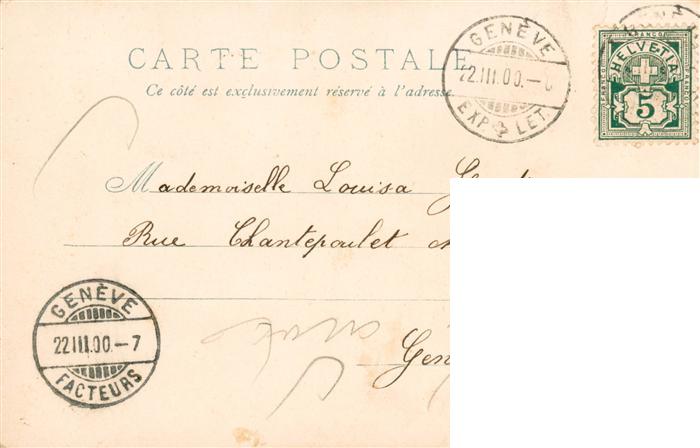 CARTE POSTALE
Ce côté est exclusivement réservé à l'adresse.
GENÈVE
22.III.00.-
EXP. LET.
FRANCO
HELVETIA
5
Mademoiselle Louisa
Rue Chantepoulet
GENÈVE
22.III.00.-7
FACTEURS